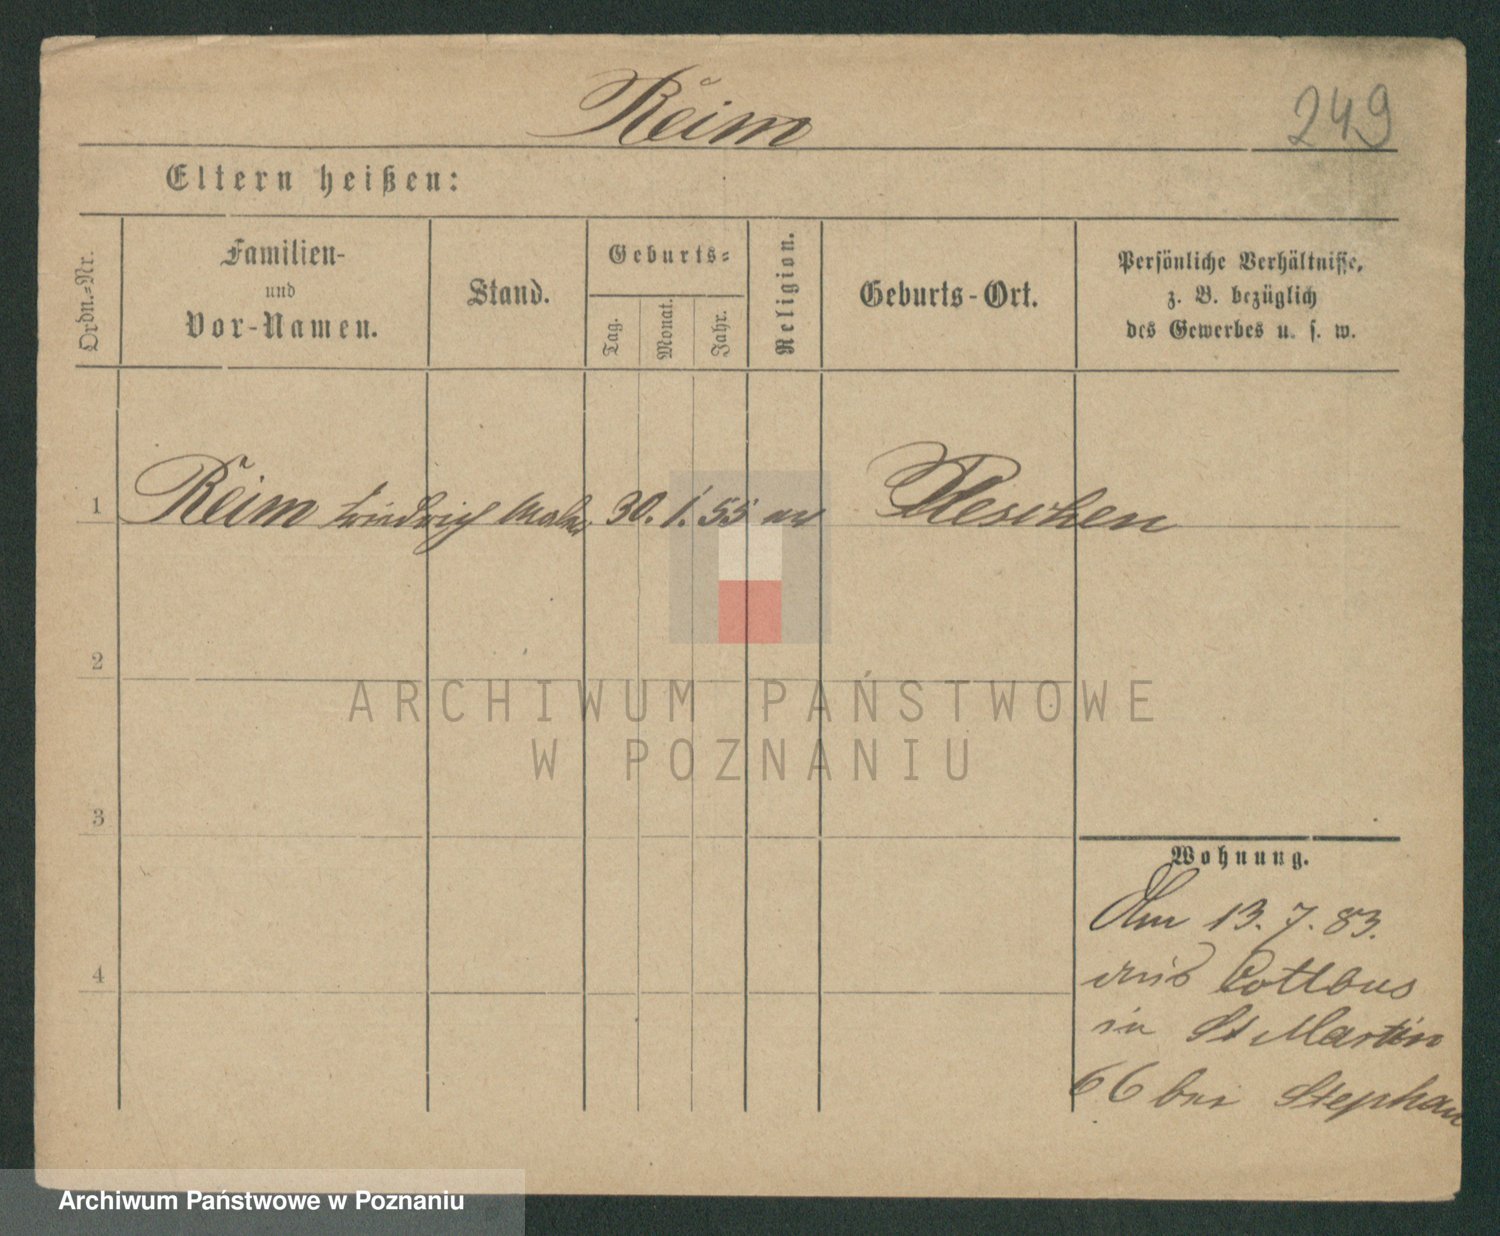 Reim
249
Eltern heißen:
Ordn.-Nr.
Familien-
und
Vor-Namen.
Stand.
Geburts-
Tag.
Monat.
Jahr.
Religion.
Geburts-Ort.
Persönliche Verhältnisse,
z. B. bezüglich
des Gewerbes u. s. w.
1 Reim Friedrich Maler 30. 1. 55 ev Pleschen
2
3
4
Wohnung.
Am 13. 7. 83.
aus Cottbus
in St Martin
66 bei Stephan
ARCHIWUM PAŃSTWOWE
W POZNANIU
Archiwum Państwowe w Poznaniu